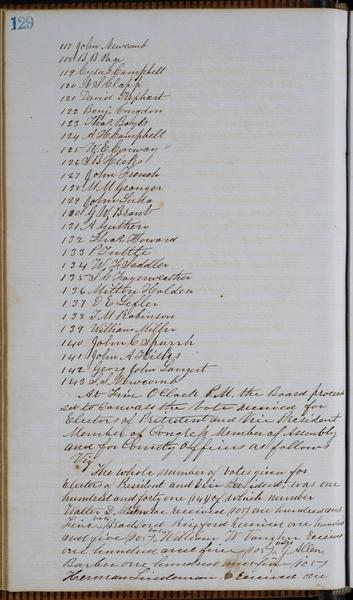 129
117 John Newcomb
118 B B Page
119 Cyrus Campbell
120 W S Clapp
121 David Gephart
122 Benj Congdon
123 Thos. Boyts
124 A H Campbell
125 W. E. Conway
126 S B Hicks
127 John French
128 M M Granger
129 John
130 G W. Brant
131 A Guthery
132 Thos. Howard
133 P Tuttle
134 W. Y. Saddler
135 S. C. Fayerweather
136 Milton Holden
137 D E Lefler
138 T. M. Robinson
139 William Miller
140 John C Spurrh
141 John A Hicks
142 Georg John
143 S. S. Newcomb
At Five O'Clock P.M. the Board proceed
ed to Canvass the Vote received for
Elector of President and Vice President
Member of Congress, Member of Assembly
and for County Officers as follows
Viz
The whole number of votes given for
Electors of President and Vice President, was one
hundred and forty one (141) of which number
Walter D. received 105 one hundred and
Five votes Bradford received one hundred
and five 105, William W Vaughn received
one hundred and five 105 votes J. Allen
Barber one hundred and five 105
Herman received one